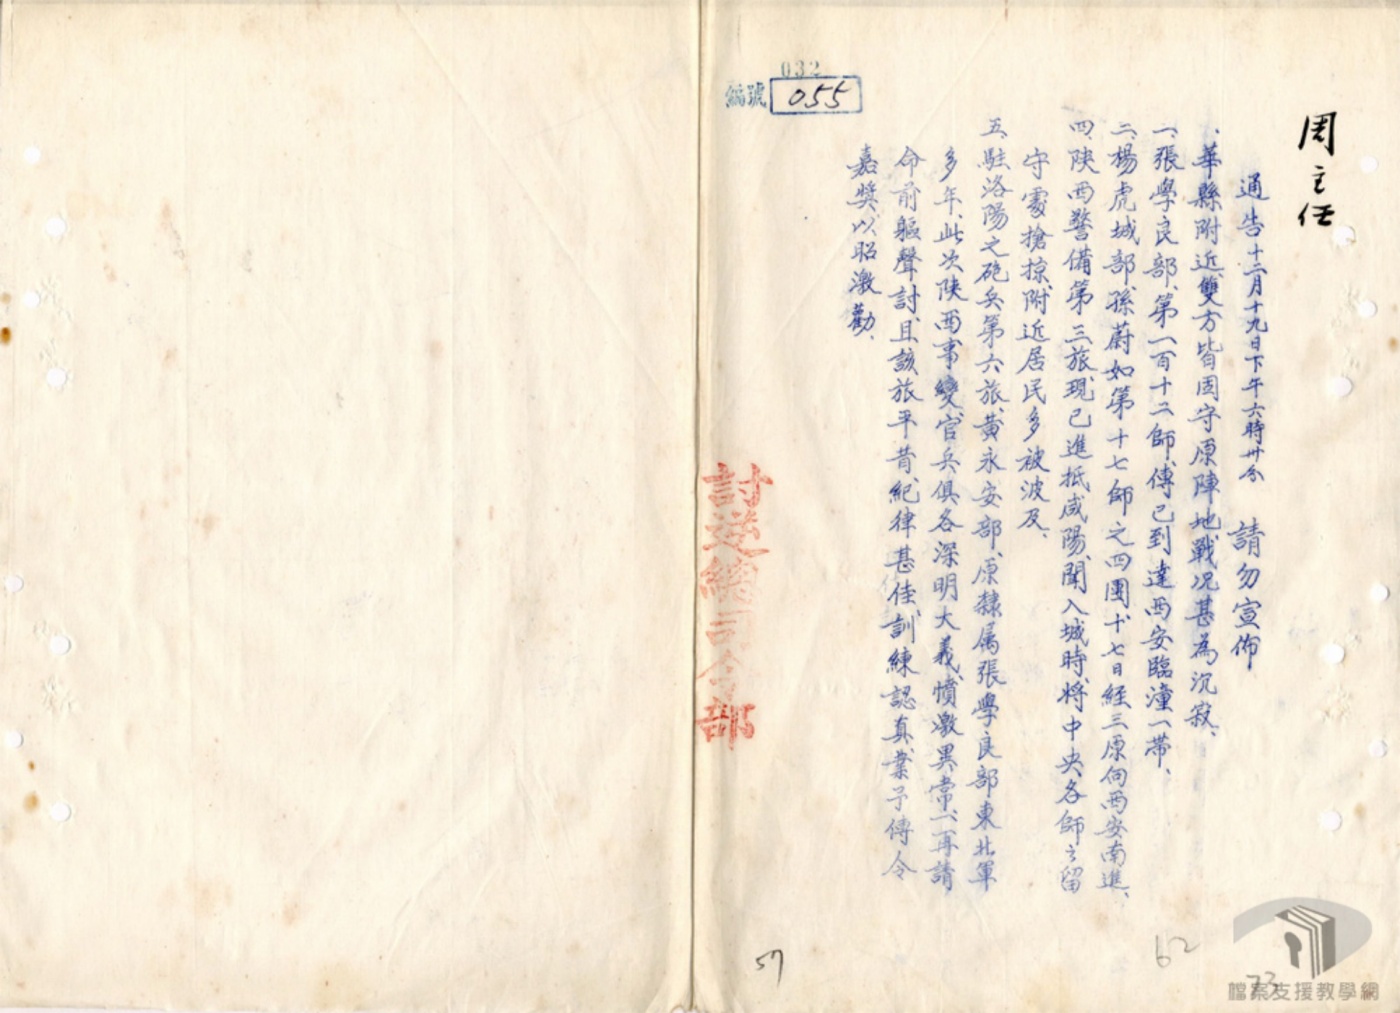 周主任
通告 十二月十九日下午六時卅分 請勿宣佈
一、華縣附近、雙方皆固守原陣地、戰況甚為沉寂、
二、張學良部、第一百十二師、傳已到達西安臨潼一帶、
三、楊虎城部、孫蔚如第十七師之四團、十七日經三原向西安南進、
四、陝西警備第三旅、現已進抵咸陽、聞入城時、將中央各師之留
守處搶掠、附近居民多被波及、
五、駐洛陽之砲兵第六旅、黃永安部、原隸属張學良部東北軍
多年、此次陝西事變、官兵俱各深明大義、憤激異常、一再請
命前軀聲討、且該旅平昔紀律甚佳、訓練認真、業予傳令
嘉獎、以昭激勸、
032
編號 055
討逆總司令部
57
62
73
檔案支援教學網